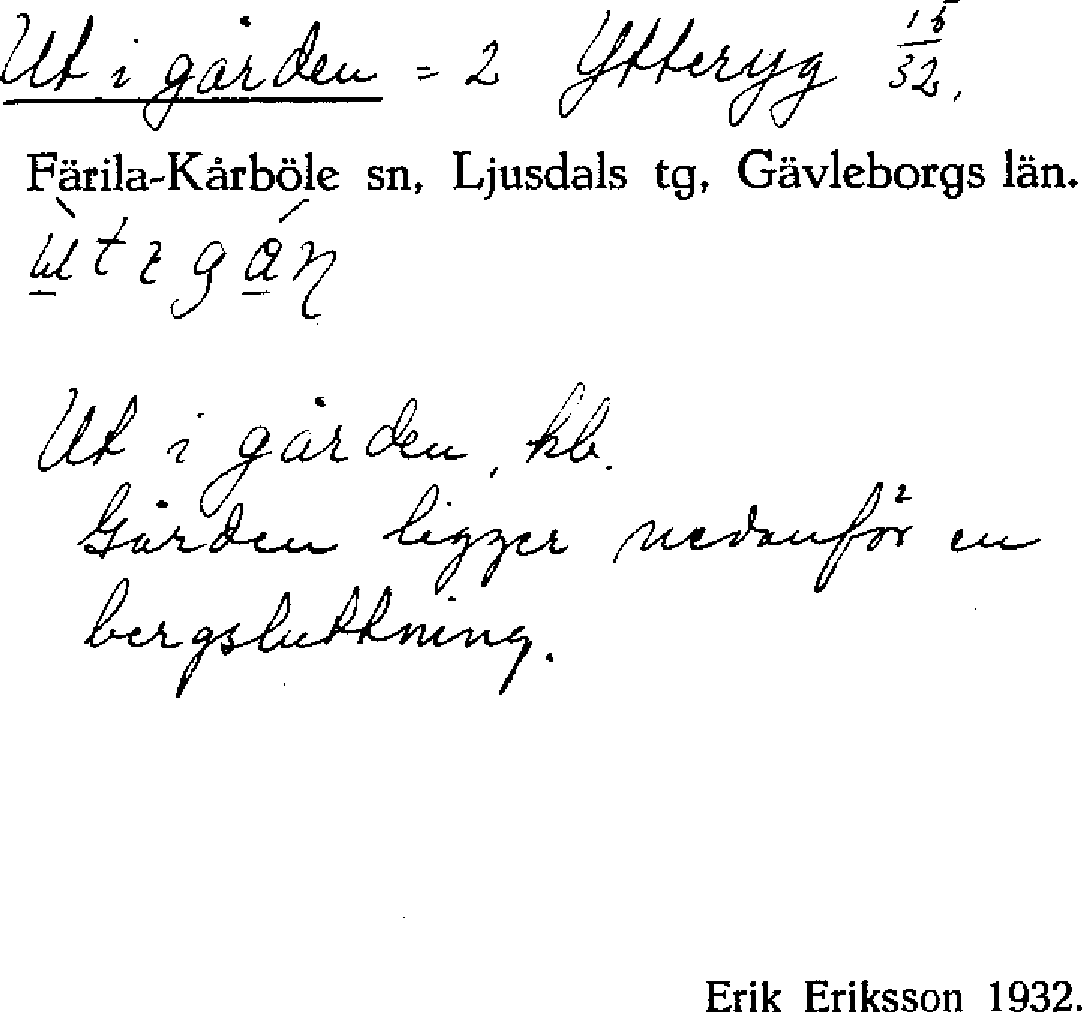 Ut i gården = 2 Ytteryg 15/32.
Färila-Kårböle sn, Ljusdals tg, Gävleborgs län.
Ut i gården, hb.
Gården ligger nedanför en
bergsluttning.
Erik Eriksson 1932.